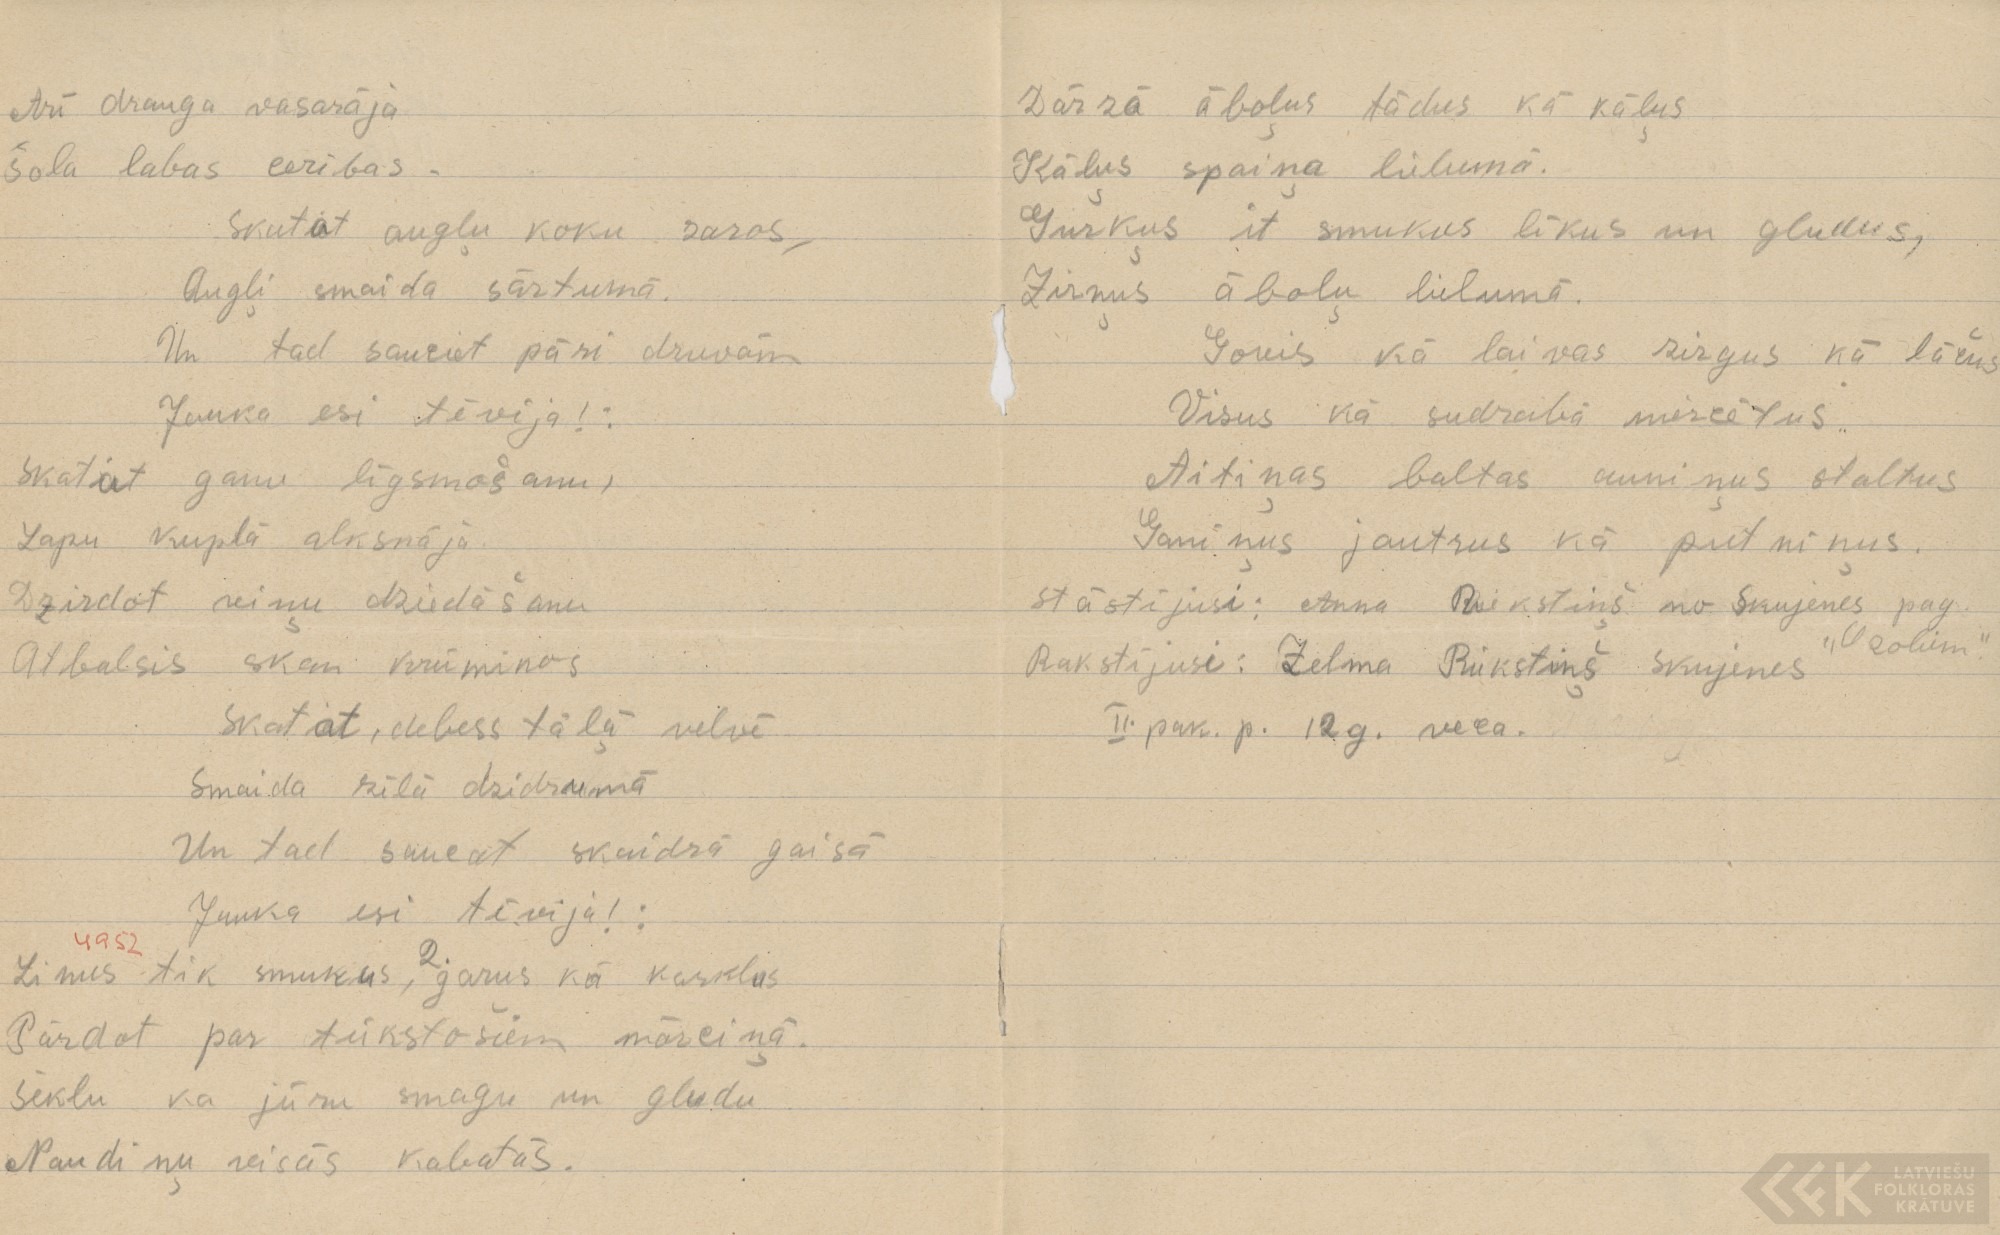 Arī drauga vasarāja
Šola labas ceribas.
Skatat augļu koku zaros,
Augļi smaida sārtumā.
Un tad sauciet pāri druvām
Jauka esi tēvija!:
Skatat ganu līgsmošanu,
Lapu kuplā alksnājā
Dzirdot viņu dziedāšanu
Atbalsis skan krūminos
Skatat, debess tāļā velvē
Smaida zilā dzidrumā
Un tad saucat skaidrā gaisā
Jauka esi tēvija!:
4952
Linus tik smukus, 2. garus kā karklus
Pārdot par tūkstošiem mārciņā.
Sēklu ka jūru smagu un gludu
Naudiņu visās kabatās.
Dārzā āboļus tādus kā kāļus
Kāļus spaiņa lielumā.
Gurķus it smukus līkus un gludus,
Zirņus āboļu lielumā.
Govis kā laivas zirgus kā lāčus
Visus kā sudrabā mērcētus.
Aitiņas baltas auniņus staltus
Ganiņus jautrus kā putniņus.
Stāstījusi: Anna Riekstiņš no Skujenes pag.
"Ozoliem".
Rakstījusi: Zelma Riekstiņš Skujenes
II. pak. p. 12 g. veca.
LATVIEŠU
FOLKLORAS
KRĀTUVE